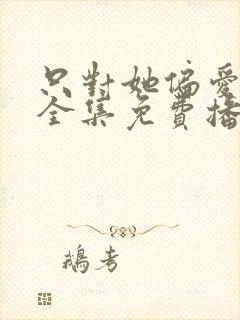 只對她偏愛
全集免費播
鵝考